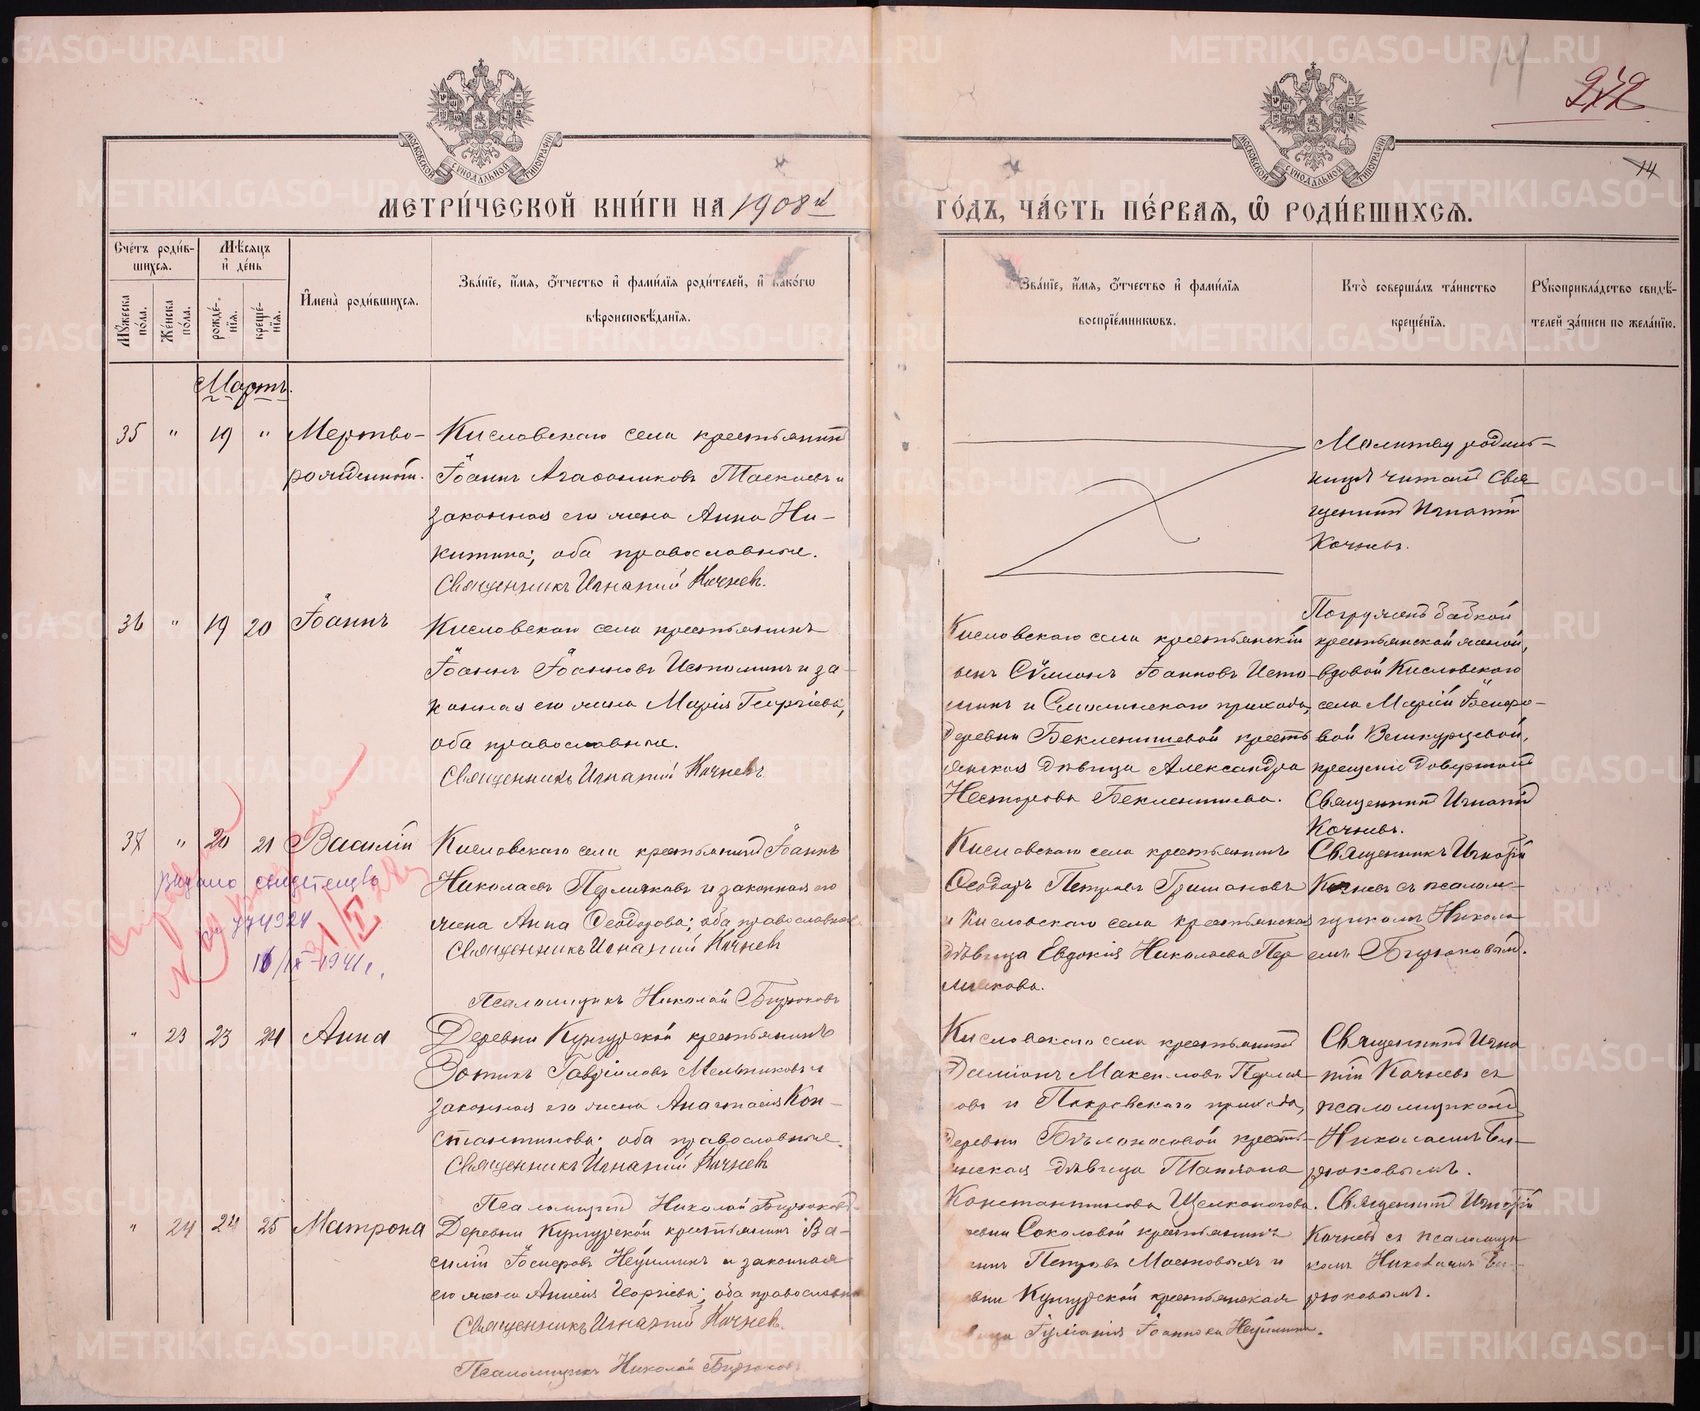 272
14
МЕТРИ́ЧЕСКОЙ КНИ́ГИ НА 1908й ГО́ДЪ, ЧА́СТЬ ПЕ́РВАЯ, Ѡ РОДИ́ВШИХСЯ.
Сче́тъ роди́вшихся.
Мѣ́сяцъ и де́нь
Мꙋ́жеска по́ла.
Же́нска по́ла.
рожде́нїя.
креще́нїя.
Имена̀ роди́вшихся.
Зва́нїе, и́мя, о́тчество и фами́лїя роди́телей, и како́гѡ
вѣроисповѣ́данїя.
Зва́нїе, и́мя, о́тчество и фами́лїя
воспрїе́мникѡвъ.
Кто̀ соверша́лъ та́инство
креще́нїя.
Рꙋкоприкла́дство свидѣ́-
телей за́писи по жела́нїю.
Мартъ.
35 " 19 " Мертво-
рожденный.
Кисловскаго села крестьянинъ
Іоаннъ Агаѳониковъ и
законная его жена Анна Ни-
китина; оба православные.
Священникъ Игнатій Кочневъ.
Молитву родиль-
ницѣ читалъ Свя-
щенникъ Игнатій
Кочневъ.
36 " 19 20 Іоаннъ
Кисловскаго села крестьянинъ
Іоаннъ Іоанновъ Истоминъ и за-
конная его жена Марія Георгіева,
оба православные.
Священникъ Игнатій Кочневъ
Кисловскаго села крестьянскій
сынъ Сѵмеонъ Іоанновъ Исто-
минъ и Смолинскаго прихода,
деревни Бекленищевой кресть
янская дѣвица Александра
Несторова Бекленищева.
Погруженъ бабкой
крестьянской женой,
вдовой Кисловскаго
села Маріей
вой
крещеніе довершилъ
Священникъ Игнатій
Кочневъ.
37 " 20 21 Василій
Кисловскаго села крестьянинъ Іоаннъ
Николаевъ Пермяковъ и законная его
жена Анна Ѳеодорова; оба православные.
Священникъ Игнатій Кочневъ
Псаломщикъ Николай Бирюковъ
Кисловскаго села крестьянинъ
Ѳеодоръ Петровъ
и Кисловскаго села крестьянская
дѣвица Евдокія Николаева Пер
мякова.
Священникъ Игнатій
Кочневъ съ псалом-
щикомъ Никола
емъ Бирюковымъ.
Выдано свидетельство
774924
1941г.
" 23 23 24 Анна
Деревни Кунгурской крестьянинъ
Зотикъ Гавріиловъ Мельниковъ и
законная его жена Анастасія Кон-
стантинова; оба православные.
Священникъ Игнатій Кочневъ
Псаломщикъ Николай Бирюковъ
Кисловскаго села крестьянинъ
Даміанъ Пермя
ковъ и Покровскаго прихода,
деревни Бѣлоносовой кресть-
янская дѣвица Татіана
Константинова Щелконогова.
Священникъ Игна
тій Кочневъ съ
псаломщикомъ
Николаемъ Би-
рюковымъ.
" 24 24 25 Матрона
Деревни Кунгурской крестьянинъ Ва-
силій Іосифовъ Неуйминъ и законная
его жена Георгіева; оба православные
Священникъ Игнатій Кочневъ.
Псаломщикъ Николай Бирюковъ
Соколовой крестьянинъ
Петровъ Мостовыхъ и
Кунгурской крестьянская
Іуліанія Іоаннова Неуймина.
Священникъ Игнатій
Кочневъ съ псаломщи
комъ Николаемъ Би-
рюковымъ.
METRIKI.GASO-URAL.RU